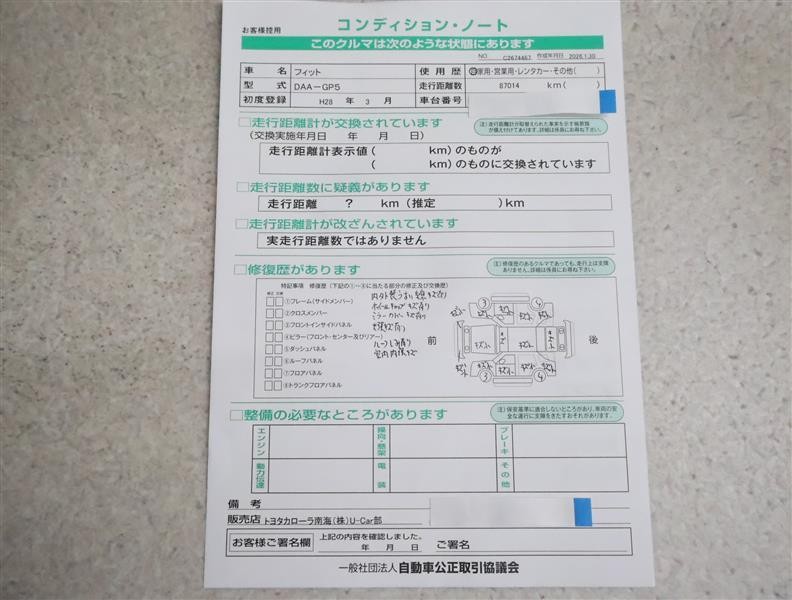 お客様控用
コンディション・ノート
このクルマは次のような状態にあります
NO. C2674467 作成年月日 2026.1.30
車名 フィット 使用歴 自家用・営業用・レンタカー・その他( )
型式 DAA-GP5 走行距離数 87014 km( )
初度登録 H28 年 3 月 車台番号
□走行距離計が交換されています
(交換実施年月日 年 月 日)
注)走行距離計が取替えられた事実を示す帳票類が備え付けてあります。詳細は係員にお尋ね下さい。
走行距離計表示値( km)のものが
( km)のものに交換されています
□走行距離数に疑義があります
走行距離 ? km(推定 )km
□走行距離計が改ざんされています
実走行距離数ではありません
□修復歴があります
注)修復歴のあるクルマであっても、走行上は支障ありません。詳細は係員にお尋ね下さい。
特記事項 修復歴(下記の①~⑧に当たる部分の修正及び交換歴)
修正 交換
□□①フレーム(サイドメンバー)
□□②クロスメンバー
□□③フロントインサイドパネル
□□④ピラー(フロント・センター及びリアー)
□□⑤ダッシュパネル
□□⑥ルーフパネル
□□⑦フロアパネル
□□⑧トランクフロアパネル
内外装うすい線キズ有り
ミラーカバーキズ有り
室内内張キズ
前
後
③ ④
③ ④
□整備の必要なところがあります
注)保安基準に適合しないところがあり、車両の安全な運行に支障をきたすおそれがあります。
エンジン 操向・懸架 ブレーキ
動力伝達 電装 その他
備考
販売店 トヨタカローラ南海(株)U-Car部
お客様ご署名欄 上記の内容を確認しました。
年 月 日 ご署名
一般社団法人 自動車公正取引協議会